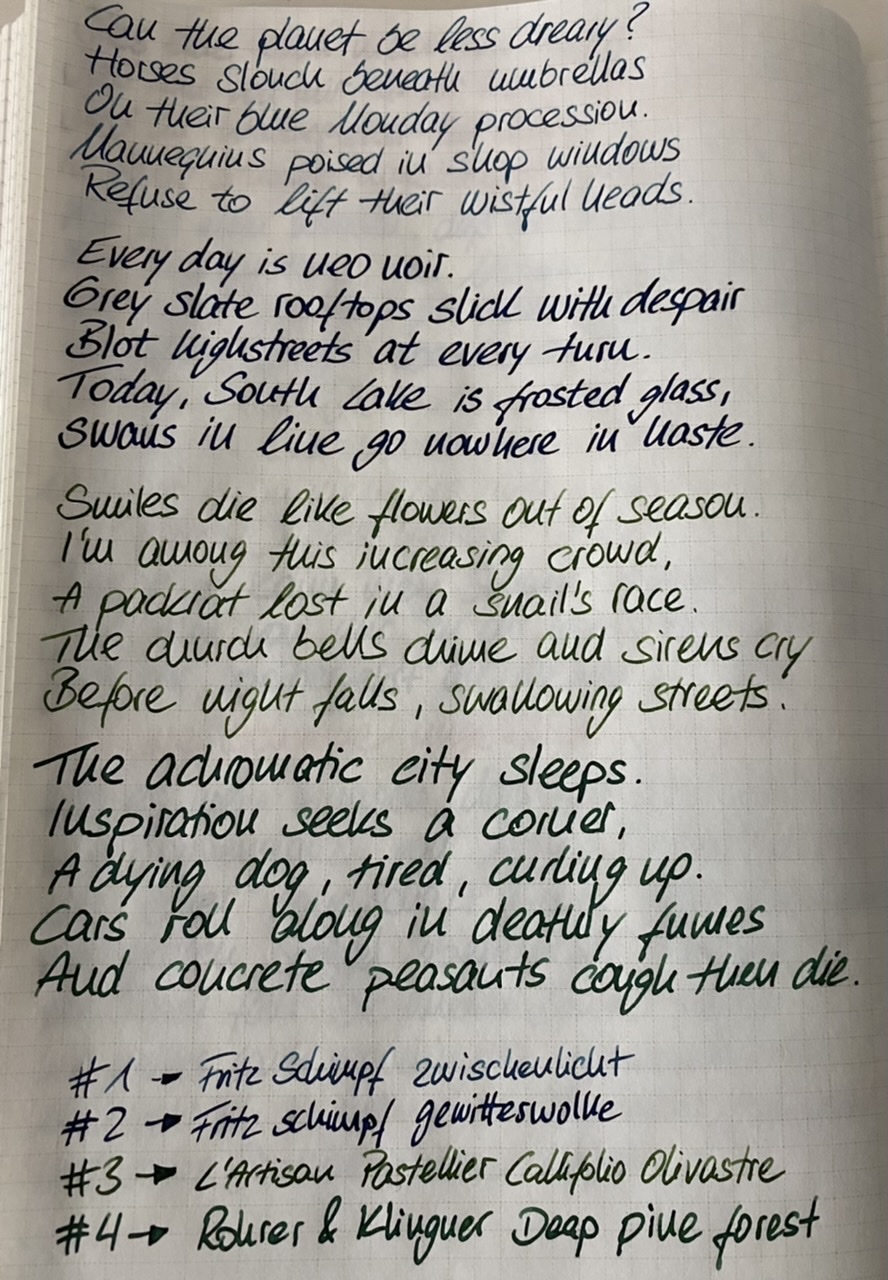 Can the planet be less dreary?
Horses slouch beneath umbrellas
On their blue Monday procession.
Mannequins poised in shop windows
Refuse to lift their wistful heads.
Every day is neo noir.
Grey slate rooftops slick with despair
Blot highstreets at every turn.
Today, South Lake is frosted glass,
Swans in line go nowhere in haste.
Smiles die like flowers out of season.
I'm among this increasing crowd,
A packrat lost in a snail's race.
The church bells chime and sirens cry
Before night falls, swallowing streets.
The achromatic city sleeps.
Inspiration seeks a corner,
A dying dog, tired, curling up.
Cars roll along in deathly fumes
And concrete peasants cough then die.
#1 → Fritz Schimpf zwischenlicht
#2 → Fritz schimpf gewitterwolke
#3 → L'Artisan Pastellier Callifolio Olivastre
#4 → Rohrer & Klingner Deep pine forest